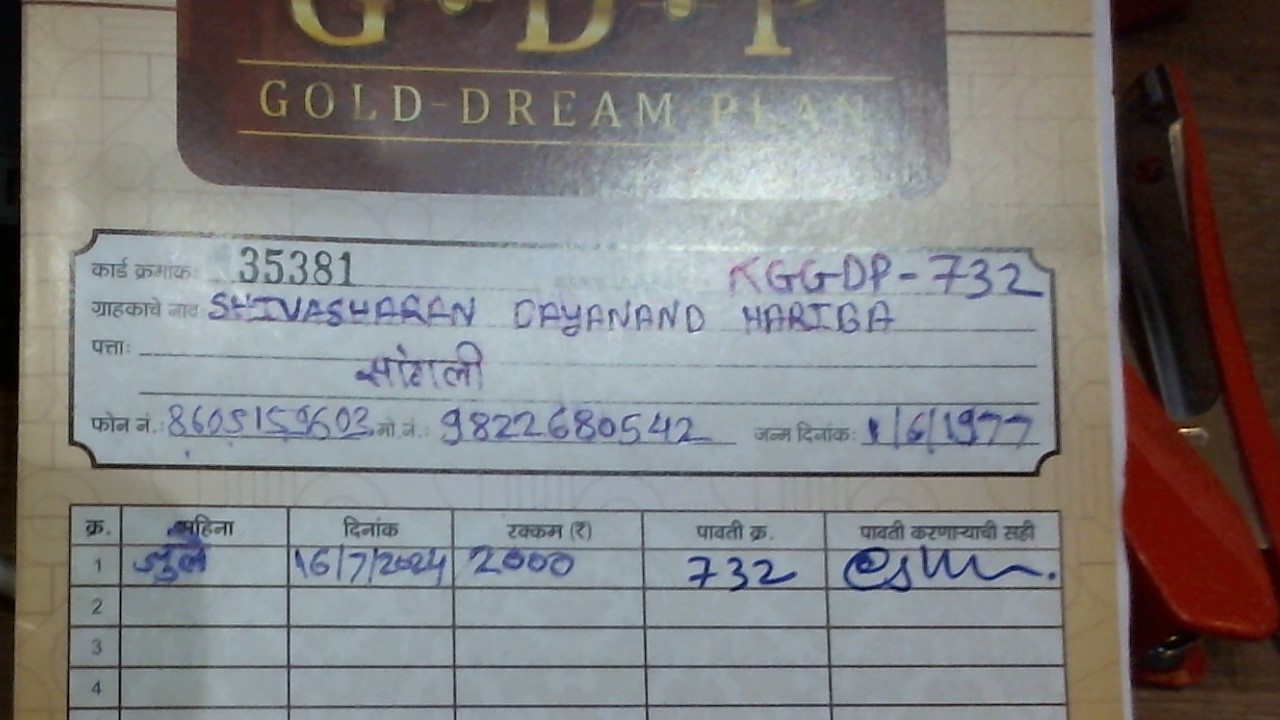 G·D·P
GOLD-DREAM PLAN
कार्ड क्रमांक: 35381 KGGDP-732
ग्राहकाचे नाव SHIVASHARAN DAYANAND HARIBA
पत्ता:
सांगली
फोन नं.: 8605159603 मो.नं.: 9822680542 जन्म दिनांक: 1/6/1977
क्र. महिना दिनांक रक्कम (₹) पावती क्र. पावती करणाऱ्याची सही
1 जुलै 16/7/2024 2000 732
2
3
4